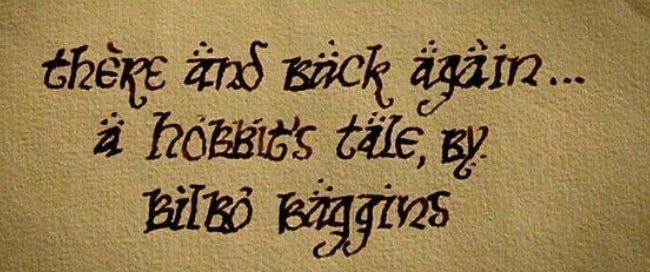 thère änd bäck ägàin...
ä hobbit's täle, by
bilbo bäggins